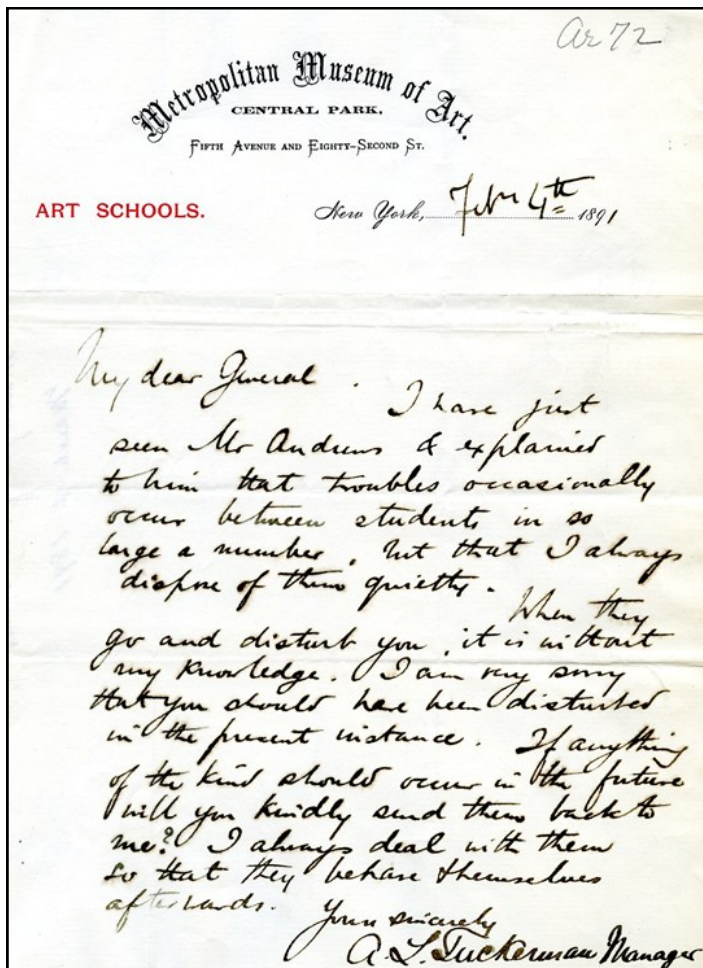 Ar 72
Metropolitan Museum of Art.
CENTRAL PARK.
FIFTH AVENUE AND EIGHTY-SECOND ST.
ART SCHOOLS.
New York, Febry 4th 1891
My dear General.
I have just
seen Mr Andrews & explained
to him that troubles occasionally
occur between students in so
large a number, but that I always
dispose of them quietly.
When they
go and disturb you, it is without
my knowledge. I am very sorry
that you should have been disturbed
in the present instance. If anything
of the kind should occur in the future
will you kindly send them back to
me? I always deal with them
so that they behave themselves
afterwards.
Yours sincerely
A. L. Tuckerman Manager